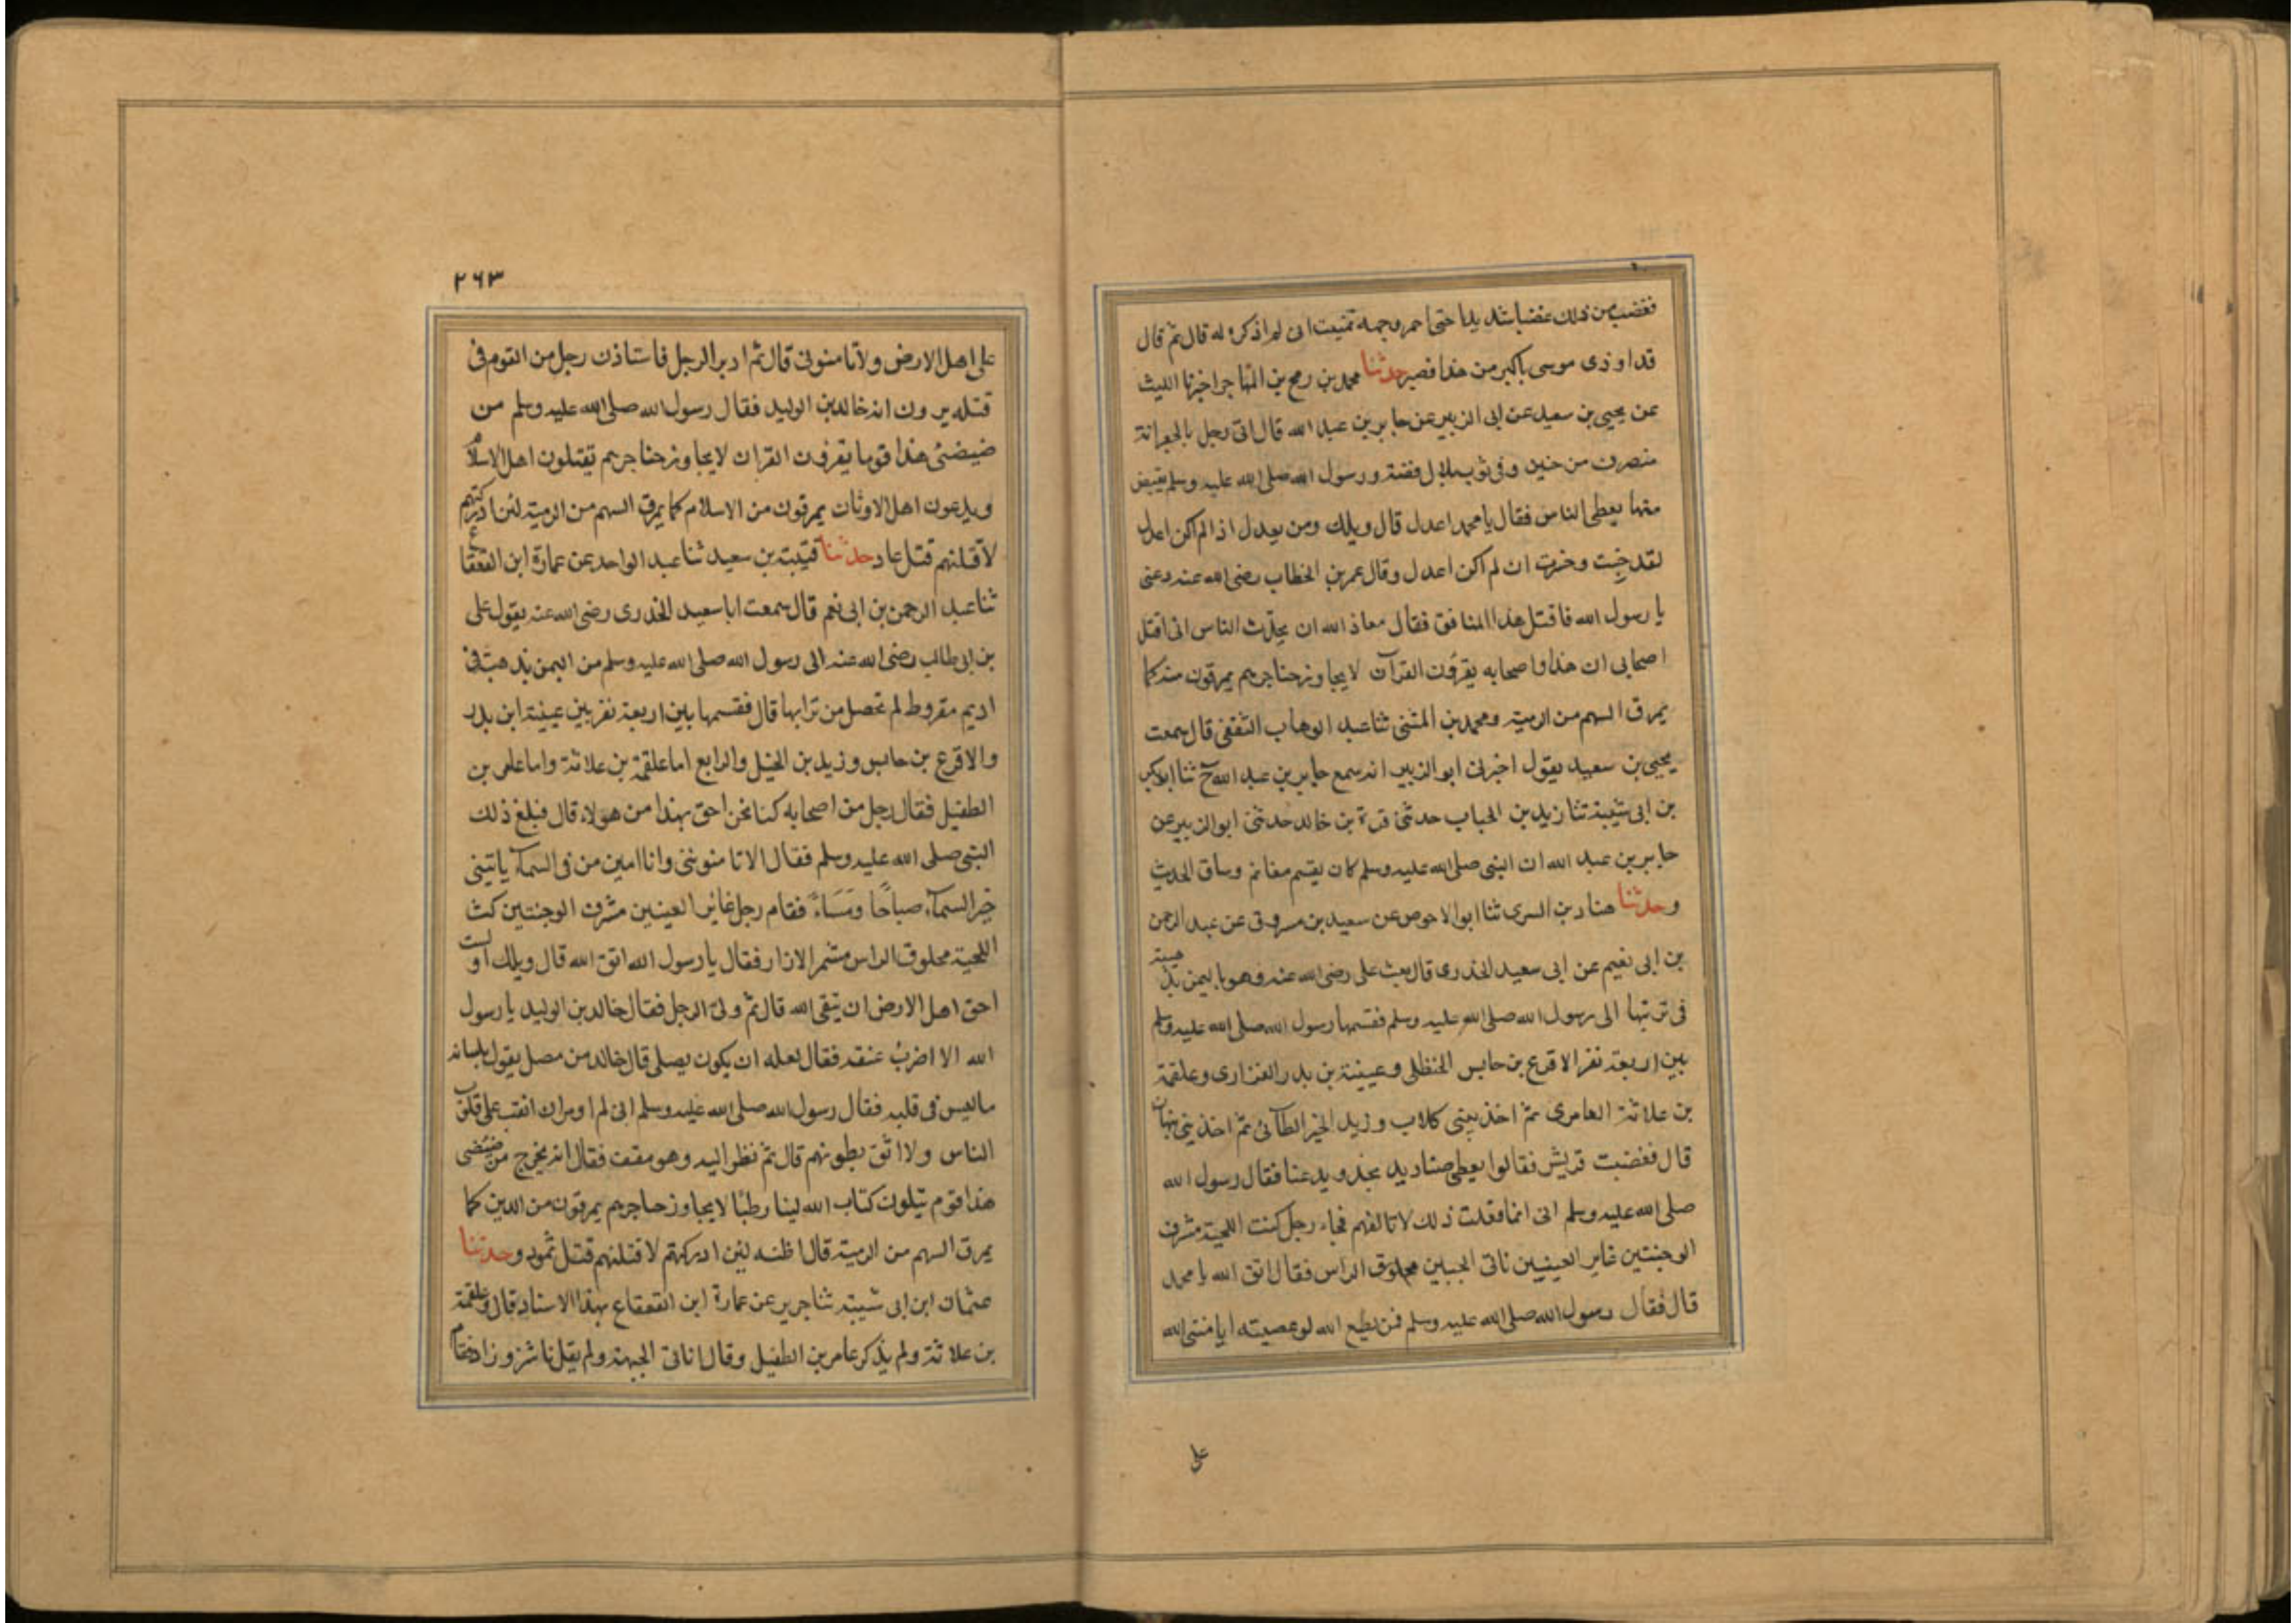 فغضب من ذلك غضبا شديدا حتى احمر وجهه تمنيت انى لم اذكره له قال ثم قال
قد اوذى موسى باكبر من هذا فصبر حدثنا محمد بن رمح بن المهاجر اخبرنا الليث
عن يحيى بن سعيد عن ابى الزبير عن جابر بن عبد الله قال اتى رجل بالجعرانة
منصرف من حنين وفى ثوب بلال فضة ورسول الله صلى الله عليه وسلم يقبض
منها يعطى الناس فقال يا محمد اعدل قال ويلك ومن يعدل اذا لم اكن اعدل
لقد خِبت وخسرت ان لم اكن اعدل وقال عمر بن الخطاب رضى الله عنه دعنى
يا رسول الله فاقتل هذا المنافق فقال معاذ الله ان يحدّث الناس انى اقتل
اصحابى ان هذا واصحابه يقرؤن القرآن لا يجاوز حناجرهم يمرقون منه كما
يمرق السهم من الرمية ومحمد بن المثنى ثنا عبد الوهاب الثقفى قال سمعت
يحيى بن سعيد يقول اخبرنى ابو الزبير انه سمع جابر بن عبد الله ح ثنا ابو بكر
بن ابى شيبة ثنا زيد بن الحباب حدثنى قرة بن خالد حدثنى ابو الزبير عن
جابر بن عبد الله ان النبى صلى الله عليه وسلم كان يقسم مغانم وساق الحديث
وحدثنا هناد بن السرى ثنا ابو الاحوص عن سعيد بن مسروق عن عبد الرحمن
بن ابى نعيم عن ابى سعيد الخدرى قال بعث على رضى الله عنه وهو باليمن بذهبية
فى تربتها الى رسول الله صلى الله عليه وسلم فقسمها رسول الله صلى الله عليه وسلم
بين اربعة نفر الاقرع بن حابس الحنظلى وعيينة بن بدر الفزارى وعلقمة
بن علاثة العامرى ثم احد بنى كلاب وزيد الخير الطائى ثم احد بنى نبهان
قال فغضبت قريش فقالوا يعطى صناديد نجد ويدعنا فقال رسول الله
صلى الله عليه وسلم انى انما فعلت ذلك لاتالفهم فجاء رجل كث اللحية مشرف
الوجنتين غاير العينين ناتى الجبين محلوق الراس فقال اتق الله يا محمد
قال فقال رسول الله صلى الله عليه وسلم فمن يطع الله لو عصيته ايامننى الله
على
٢٦٣
على اهل الارض ولا تامنونى قال ثم ادبر الرجل فاستاذن رجل من القوم فى
قتله يرون انه خالد بن الوليد فقال رسول الله صلى الله عليه وسلم من
ضيضئى هذا قوما يقرؤن القران لا يجاوز حناجرهم يقتلون اهل الاسلام
ويدعون اهل الاوثان يمرقون من الاسلام كما يمرق السهم من الرمية لئن ادركتهم
لاقتلنهم قتل عاد حدثنا قتيبة بن سعيد ثنا عبد الواحد عن عمارة ابن القعقاع
ثنا عبد الرحمن بن ابى نعم قال سمعت ابا سعيد الخدرى رضى الله عنه يقول على
بن ابى طالب رضى الله عنه الى رسول الله صلى الله عليه وسلم من اليمن بذهبة فى
اديم مقروظ لم تحصل من ترابها قال فقسمها بين اربعة نفر بين عيينة ابن بدر
والاقرع بن حابس وزيد بن الخيل والرابع اما علقمة بن علاثة واما عامر بن
الطفيل فقال رجل من اصحابه كنا نحن احق بهذا من هولاء قال فبلغ ذلك
النبى صلى الله عليه وسلم فقال الا تامنوننى وانا امين من فى السمآء ياتينى
خبر السمآء صباحًا وَمَسَاءً فقام رجل غائر العينين مشرف الوجنتين كث
اللحية محلوق الراس مشمر الازار فقال يا رسول الله اتق الله قال ويلك اولست
احق اهل الارض ان يتقى الله قال ثم ولى الرجل فقال خالد بن الوليد يا رسول
الله الا اضربُ عنقه فقال لعله ان يكون يصلى قال خالد من مصل يقول بلسانه
ما ليس فى قلبه فقال رسول الله صلى الله عليه وسلم انى لم اومر ان انقب على قلوب
الناس ولا اشق بطونهم قال ثم نظر اليه وهو مقف فقال انه يخرج من ضئضى
هذا قوم يتلون كتاب الله لينا رطبًا لا يجاوز حناجرهم يمرقون من الدين كما
يمرق السهم من الرمية قال اظنه لئن ادركتهم لاقتلنهم قتل ثمود وحدثنا
عثمان ابن ابى شيبة ثنا جرير عن عمارة ابن القعقاع بهذا الاسناد قال وعلقمة
بن علاثة ولم يذكر عامر بن الطفيل وقال ناتى الجبهة ولم يقل ناشز وزاد فقام